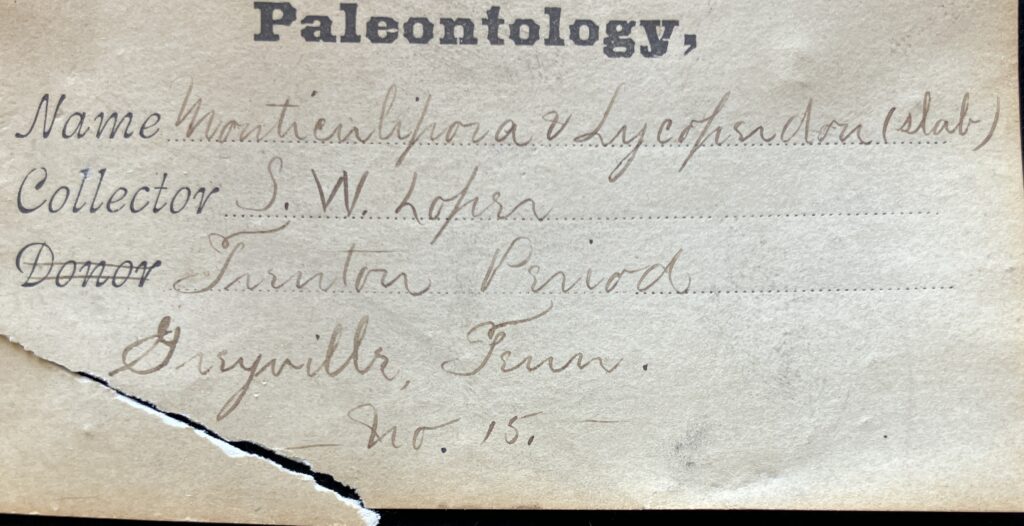 Paleontology,
Name Monticulipora & Lycoperdon (slab)
Collector S. W. Loper
Donor Trenton Period
Greyville, Tenn.
— No. 15. —